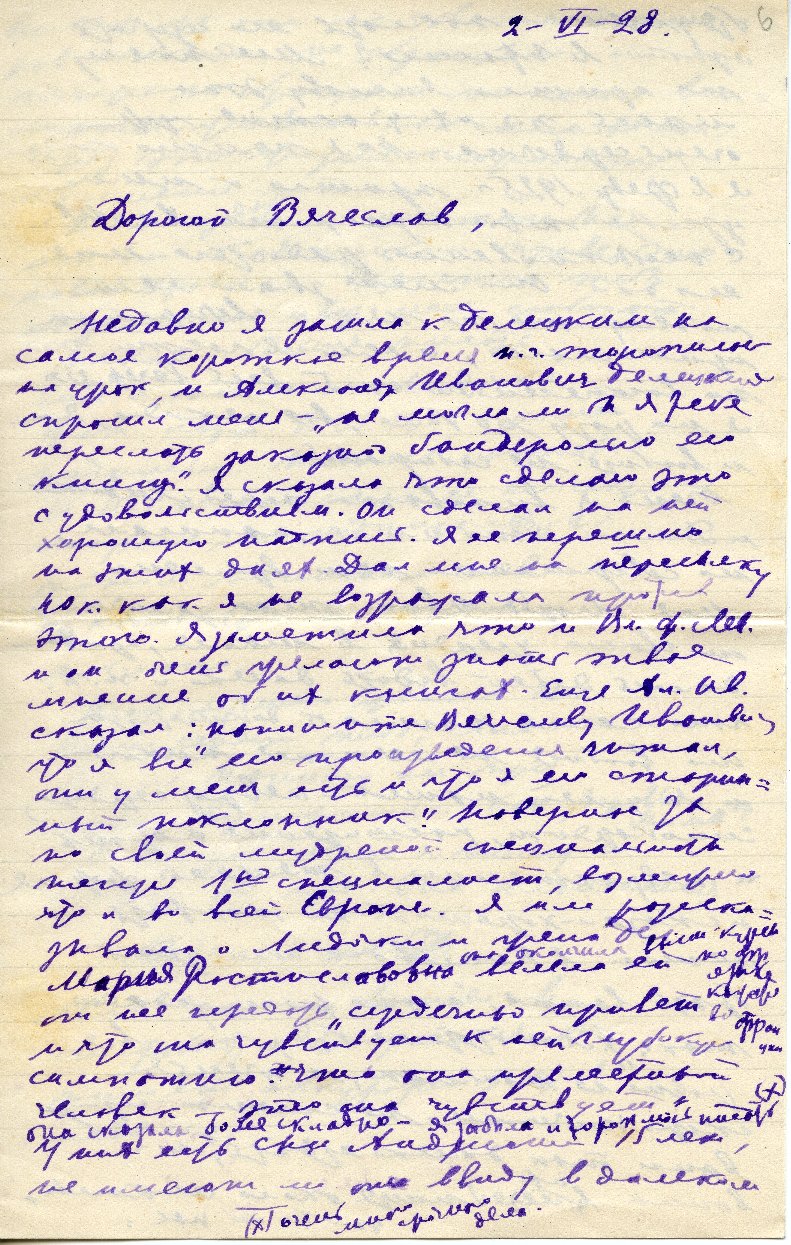 6
2-VI-28.
Дорогой Вячеслав,
Недавно я зашла к Белецким на
самое короткое время п.ч. торопилась
на урок, и Александр Иванович Белецкий
спросил меня – „не могла ли б я тебе
переслать заказной бандеролью его
книгу". Я сказала что сделаю это
с удовольствием. Он сделал на ней
хорошую надпись. Я ее перешлю
на этих днях. Дал мне на пересылку
так как я не возражала против
этого. Я заметила что и Вл. Ф. Лев.
и он очень желают знать твое
мнение об их книгах. Еще Ал. Ив.
сказал: напишите Вячеславу Ивановичу
что я всё его произведения читал,
они у меня есть и что я его старин=
ный поклонник"
по своей специальности
1ю специалист,
что и во всей Европе. Я им расска=
зывала о Лидочке и
она окончила
Мария Ростиславовна велела ей
от нее передать „сердечный привет
и что она чувствует к ней глубокую
симпатию." что она
человек – это она чувствует" (х)
она сказала более складно – я забыла и тороплюсь писать
У них есть сын Андрюша 15 лет,
не имеют ли они ввиду в далеком
(х) очень много срочного дела.